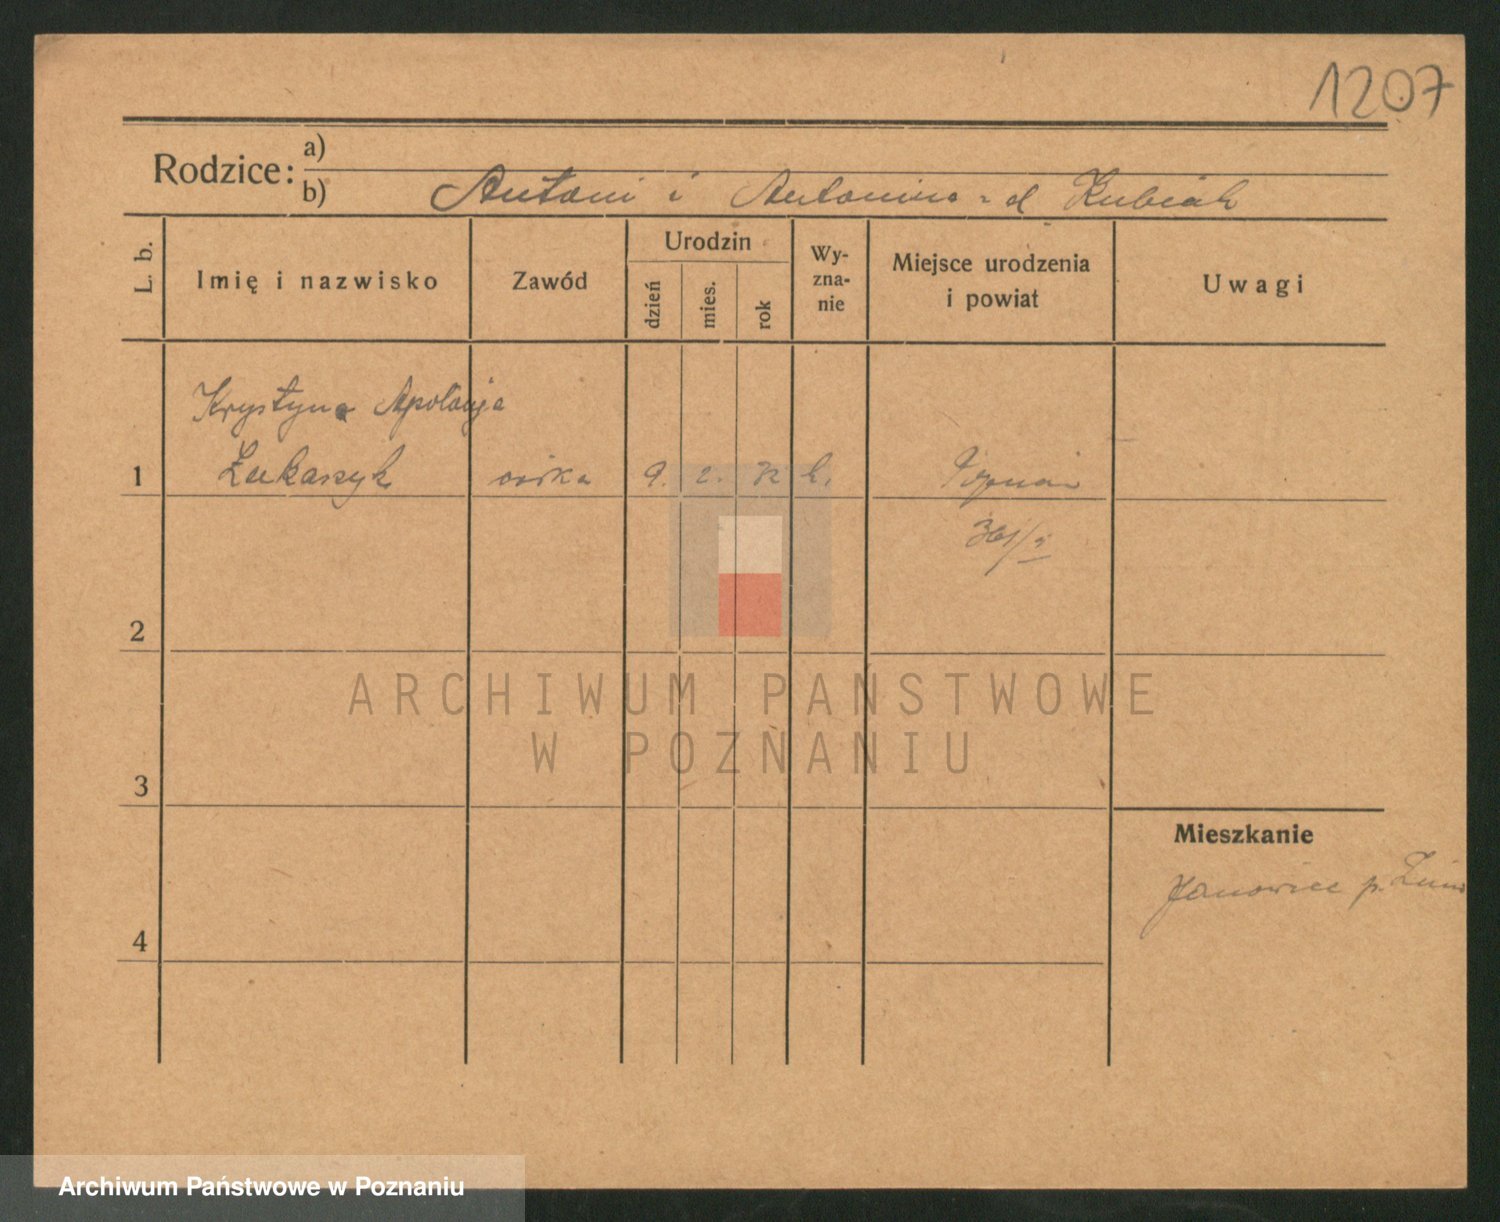 1207
Rodzice: a)
b) Antoni i Antonina z d Kubiak
L. b. Imię i nazwisko Zawód Urodzin dzień mies. rok Wy-zna-nie Miejsce urodzenia i powiat Uwagi
Krystyna Apolonja
1 Łukaszyk córka 9. 2. k. Poznań
2
ARCHIWUM PAŃSTWOWE
W POZNANIU
3
Mieszkanie
Janowiec p. Żnin
4
Archiwum Państwowe w Poznaniu